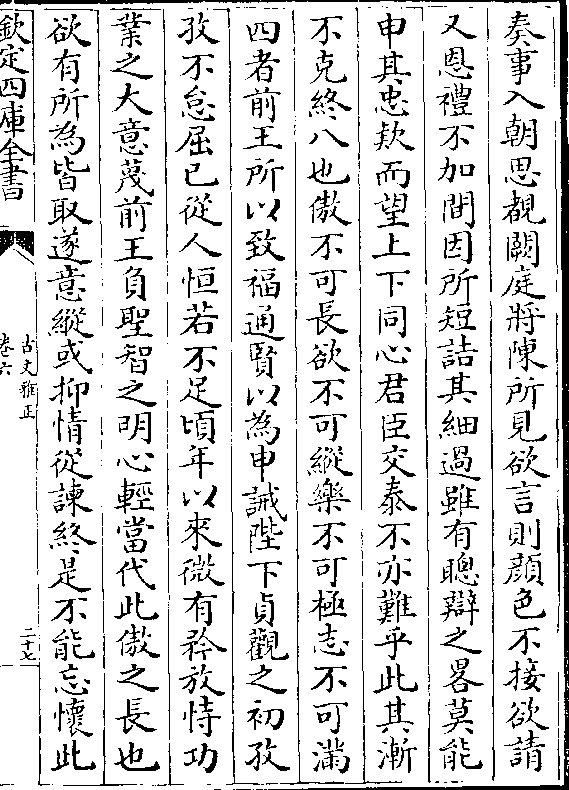 奏事入朝思覩闕庭將陳所見欲言則顔色不接欲請
又恩禮不加間因所短詰其細過雖有聰辯之畧莫能
申其忠欵而望上下同心君臣交泰不亦難乎此其漸
不克終八也傲不可長欲不可縱樂不可極志不可滿
四者前王所以致福通賢以為申誡陛下貞觀之初孜
孜不怠屈已從人恒若不足頃年以來微有矜放恃功
業之大意蔑前王負聖智之明心輕當代此傲之長也
欲有所為皆取遂意縱或抑情從諫終是不能忘懷此
欽定四庫全書
古文雅正
卷六
二十七